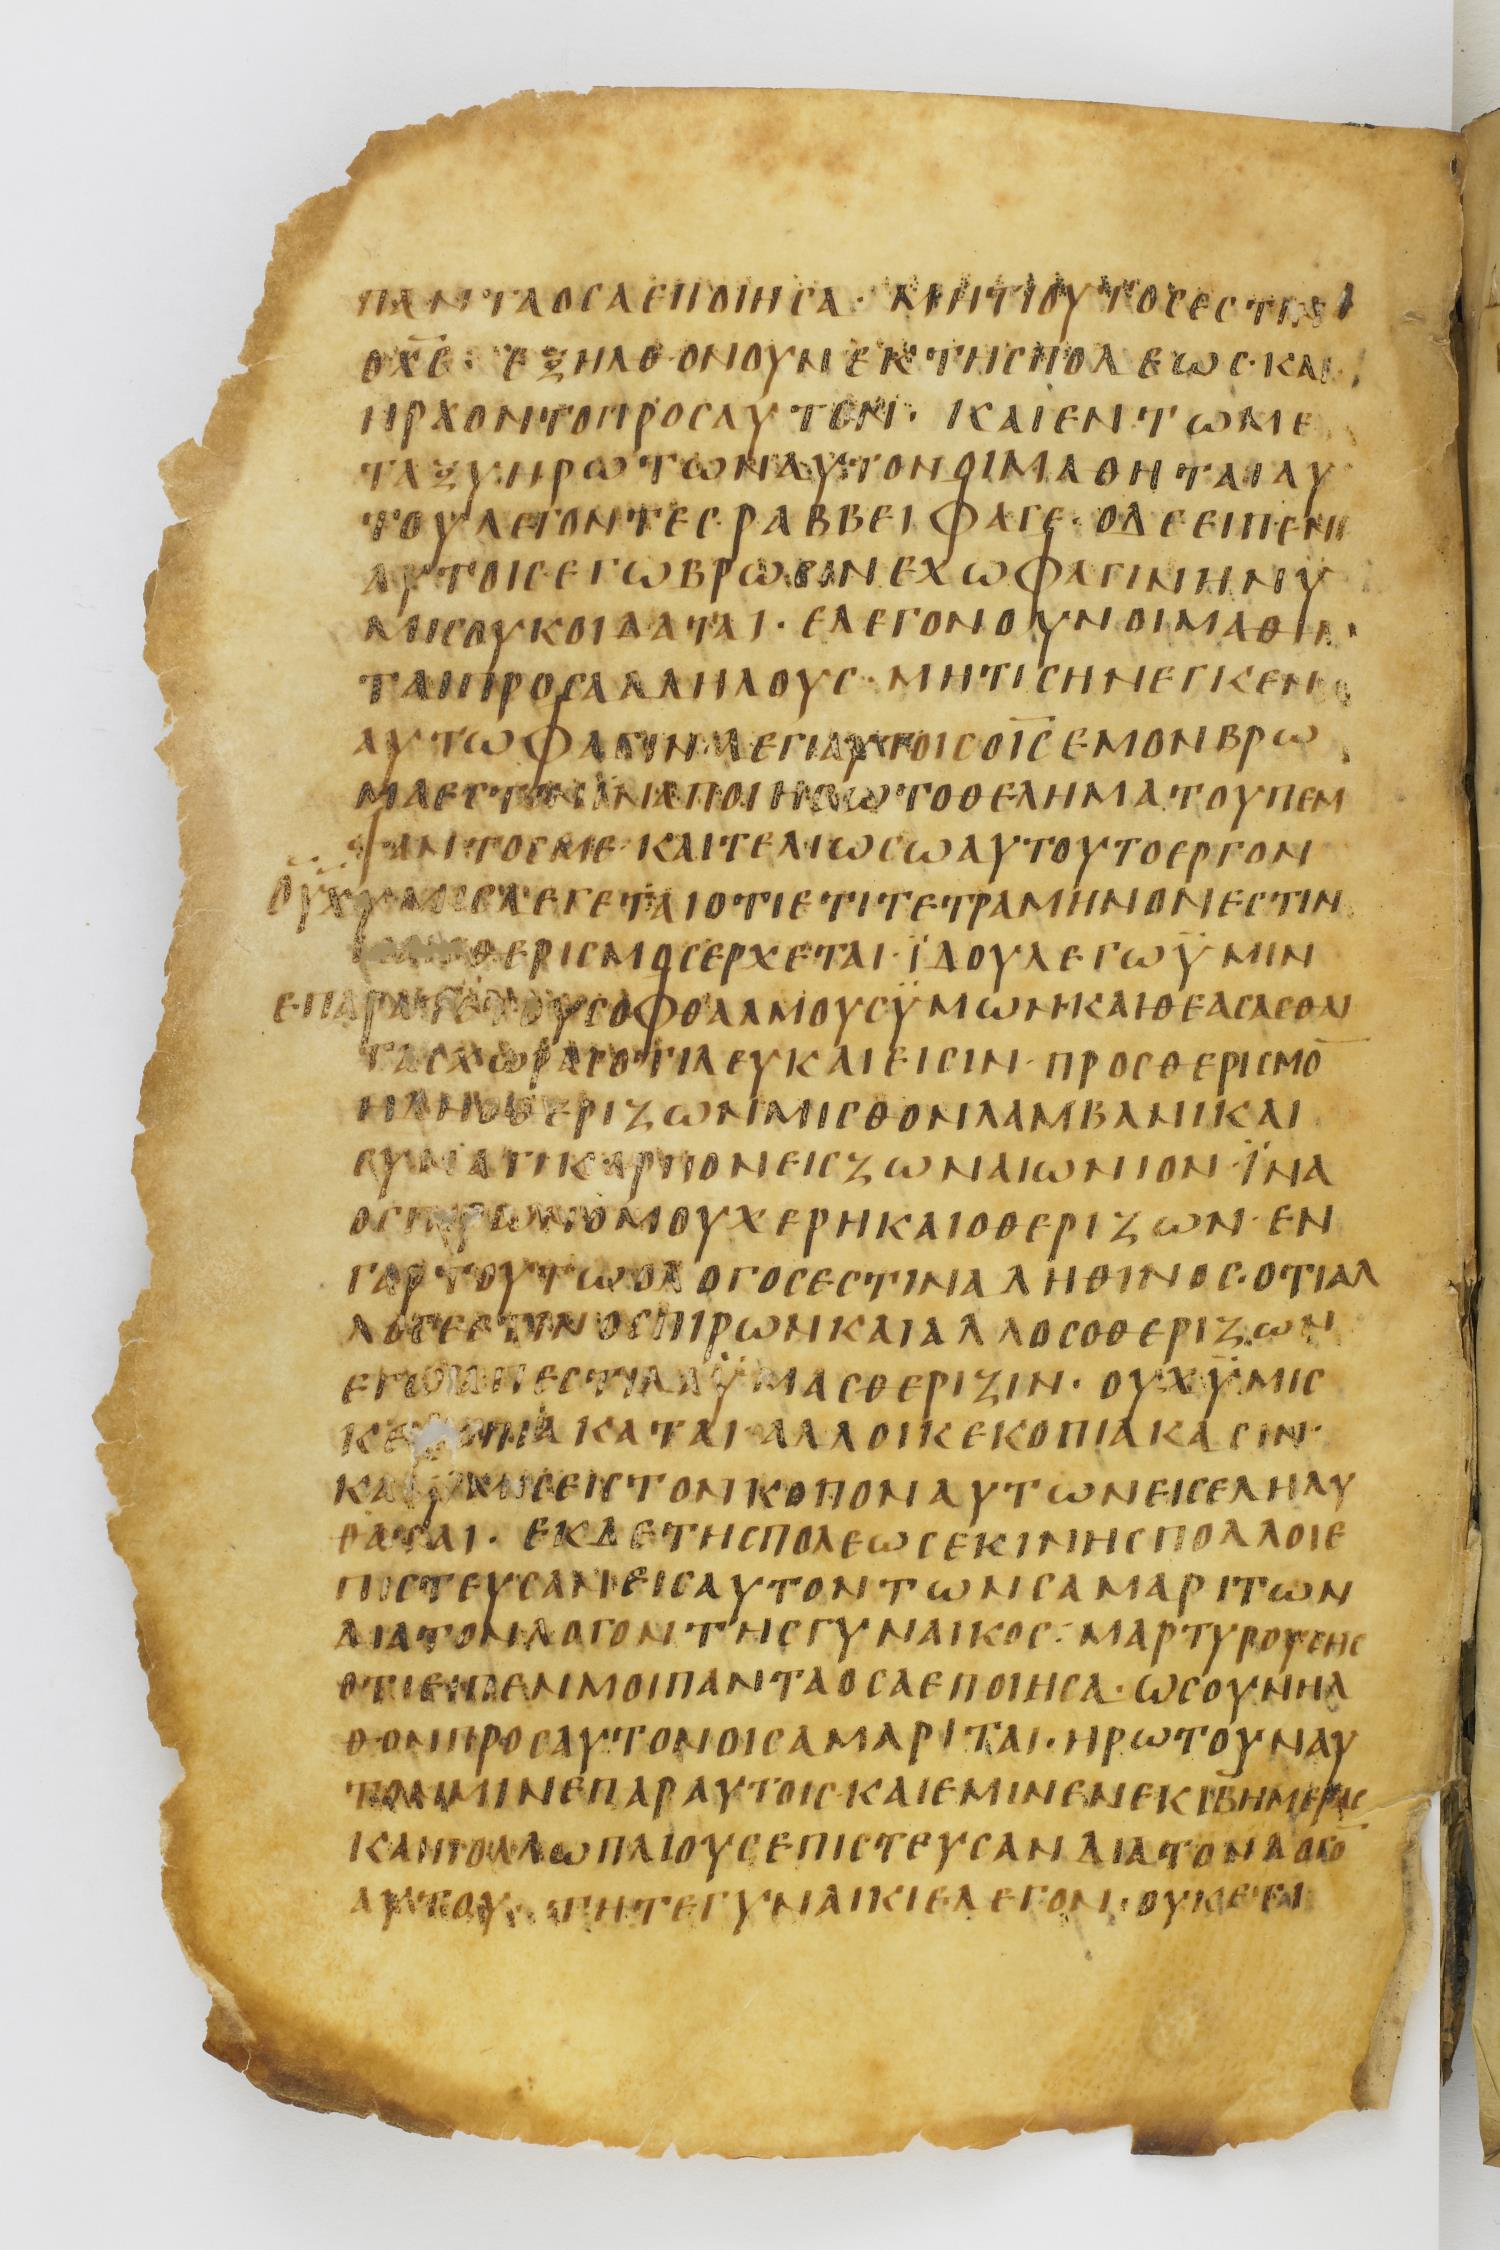 ΠΑΝΤΑΟCΑΕΠΟΙΗCΑ· ΜΗΤΙΟΥΤΟCΕCΤΙΝ
ΟΧ̅C̅· ΕΞΗΛΘΟΝΟΥΝΕΚΤΗCΠΟΛΕωC·ΚΑΙ
ΗΡΧΟΝΤΟΠΡΟCΑΥΤΟΝ· ΚΑΙΕΝΤωΜΕ
ΤΑΞΥΗΡωΤωΝΑΥΤΟΝΟΙΜΑΘΗΤΑΙΑΥ
ΤΟΥΛΕΓΟΝΤΕC·ΡΑΒΒΕΙΦΑΓΕ·ΟΔΕΕΙΠΕΝ
ΑΥΤΟΙCΕΓωΒΡωCΙΝΕΧωΦΑΓΙΝΗΝΥ
ΜΙCΟΥΚΟΙΔΑΤΑΙ· ΕΛΕΓΟΝΟΥΝΟΙΜΑΘΗ
ΤΑΙΠΡΟCΑΛΛΗΛΟΥC·ΜΗΤΙCΗΝΕΓΚΕΝ
ΑΥΤωΦΑΓΙΝΛΕΓΙΑΥΤΟΙCΟΙ̅C̅ΕΜΟΝΒΡω
ΜΑΕCΤΙΝΙΝΑΠΟΙΗCωΤΟΘΕΛΗΜΑΤΟΥΠΕΜ
ΨΑΝΤΟCΜΕ·ΚΑΙΤΕΛΙωCωΑΥΤΟΥΤΟΕΡΓΟΝ
ΟΥΧΫΜΙCΛΕΓΕΤΑΙΟΤΙΕΤΙΤΕΤΡΑΜΗΝΟΝΕCΤΙΝ
ΘΕΡΙCΜΟCΕΡΧΕΤΑΙ·ΪΔΟΥΛΕΓωΫΜΙΝ
ΕΠΑΡΑΤΕΤΟΥCΟΦΘΑΛΜΟΥCΫΜωΝΚΑΙΘΕΑCΑCΘΑΙ
ΤΑCΧωΡΑCΟΤΙΛΕΥΚΑΙΕΙCΙΝ·ΠΡΟCΘΕΡΙCΜΟ̅
ΗΔΗΟΘΕΡΙΖωΝΜΙCΘΟΝΛΑΜΒΑΝΙΚΑΙ
CΥΝΑΓΙΚΑΡΠΟΝΕΙCΖωΝΑΙωΝΙΟΝ·ΪΝΑ
ΟCΠΙΡωΝΟΜΟΥΧΕΡΗΚΑΙΟΘΕΡΙΖωΝ·ΕΝ
ΓΑΡΤΟΥΤωΟΛΟΓΟCΕCΤΙΝΑΛΗΘΙΝΟC·ΟΤΙΑΛ
ΛΟCΕCΤΙΝΟCΠΙΡωΝΚΑΙΑΛΛΟCΟΘΕΡΙΖωΝ
ΕΓωΑΠΕCΤΙΛΑΫΜΑCΘΕΡΙΖΙΝ· ΟΥΧΫΜΙC
ΚΕΚΟΠΙΑΚΑΤΑΙ·ΑΛΛΟΙΚΕΚΟΠΙΑΚΑCΙΝ·
ΚΑΙΥΜΙCΕΙCΤΟΝΚΟΠΟΝΑΥΤωΝΕΙCΕΛΗΛΥ
ΘΑΤΑΙ· ΕΚΔΕΤΗCΠΟΛΕωCΕΚΙΝΗCΠΟΛΛΟΙΕ
ΠΙCΤΕΥCΑΝΕΙCΑΥΤΟΝΤωΝCΑΜΑΡΙΤωΝ
ΔΙΑΤΟΝΛΟΓΟΝΤΗCΓΥΝΑΙΚΟC· ΜΑΡΤΥΡΟΥCΗC
ΟΤΙΕΙΠΕΝΜΟΙΠΑΝΤΑΟCΑΕΠΟΙΗCΑ·ωCΟΥΝΗΛ
ΘΟΝΠΡΟCΑΥΤΟΝΟΙCΑΜΑΡΙΤΑΙ·ΗΡωΤΟΥΝΑΥ
ΤΟΝΜΙΝΕΠΑΡΑΥΤΟΙC·ΚΑΙΕΜΙΝΕΝΕΚΙΒ̅ΗΜΕΡΑC
ΚΑΙΠΟΛΛωΠΛΙΟΥCΕΠΙCΤΕΥCΑΝΔΙΑΤΟΝΛΟΓΟ̅
ΑΥΤΟΥ· ΤΗΤΕΓΥΝΑΙΚΙΕΛΕΓΟΝ·ΟΥΚΕΤΙ